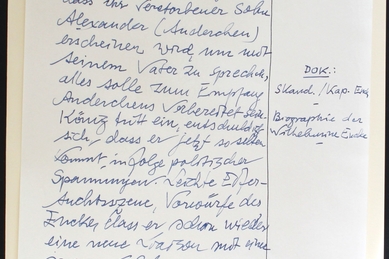 dass ihr verstorbener Sohn
Alexander (Anderchen)
erscheinen wird, um mit
seinem Vater zu sprechen,
alles solle zum Empfang
Anderchens vorbereitet sein.
König tritt ein, entschuldigt
sich, dass er jetzt so selten
kommt, infolge politischer
Spannungen. Leichte Eifer-
suchtsszene, Vorwürfe des
Encke, dass er schon wieder
eine neue Liaison mit eine
DOK.:
Skand. / Kap. Enc
Biographie der
Wilhelmine Encke